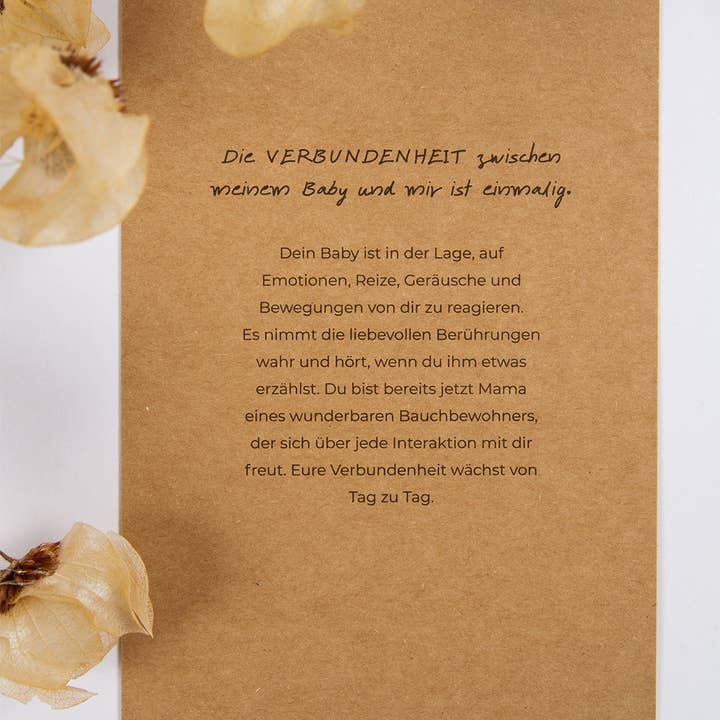 Die VERBUNDENHEIT zwischen
meinem Baby und mir ist einmalig.
Dein Baby ist in der Lage, auf
Emotionen, Reize, Geräusche und
Bewegungen von dir zu reagieren.
Es nimmt die liebevollen Berührungen
wahr und hört, wenn du ihm etwas
erzählst. Du bist bereits jetzt Mama
eines wunderbaren Bauchbewohners,
der sich über jede Interaktion mit dir
freut. Eure Verbundenheit wächst von
Tag zu Tag.